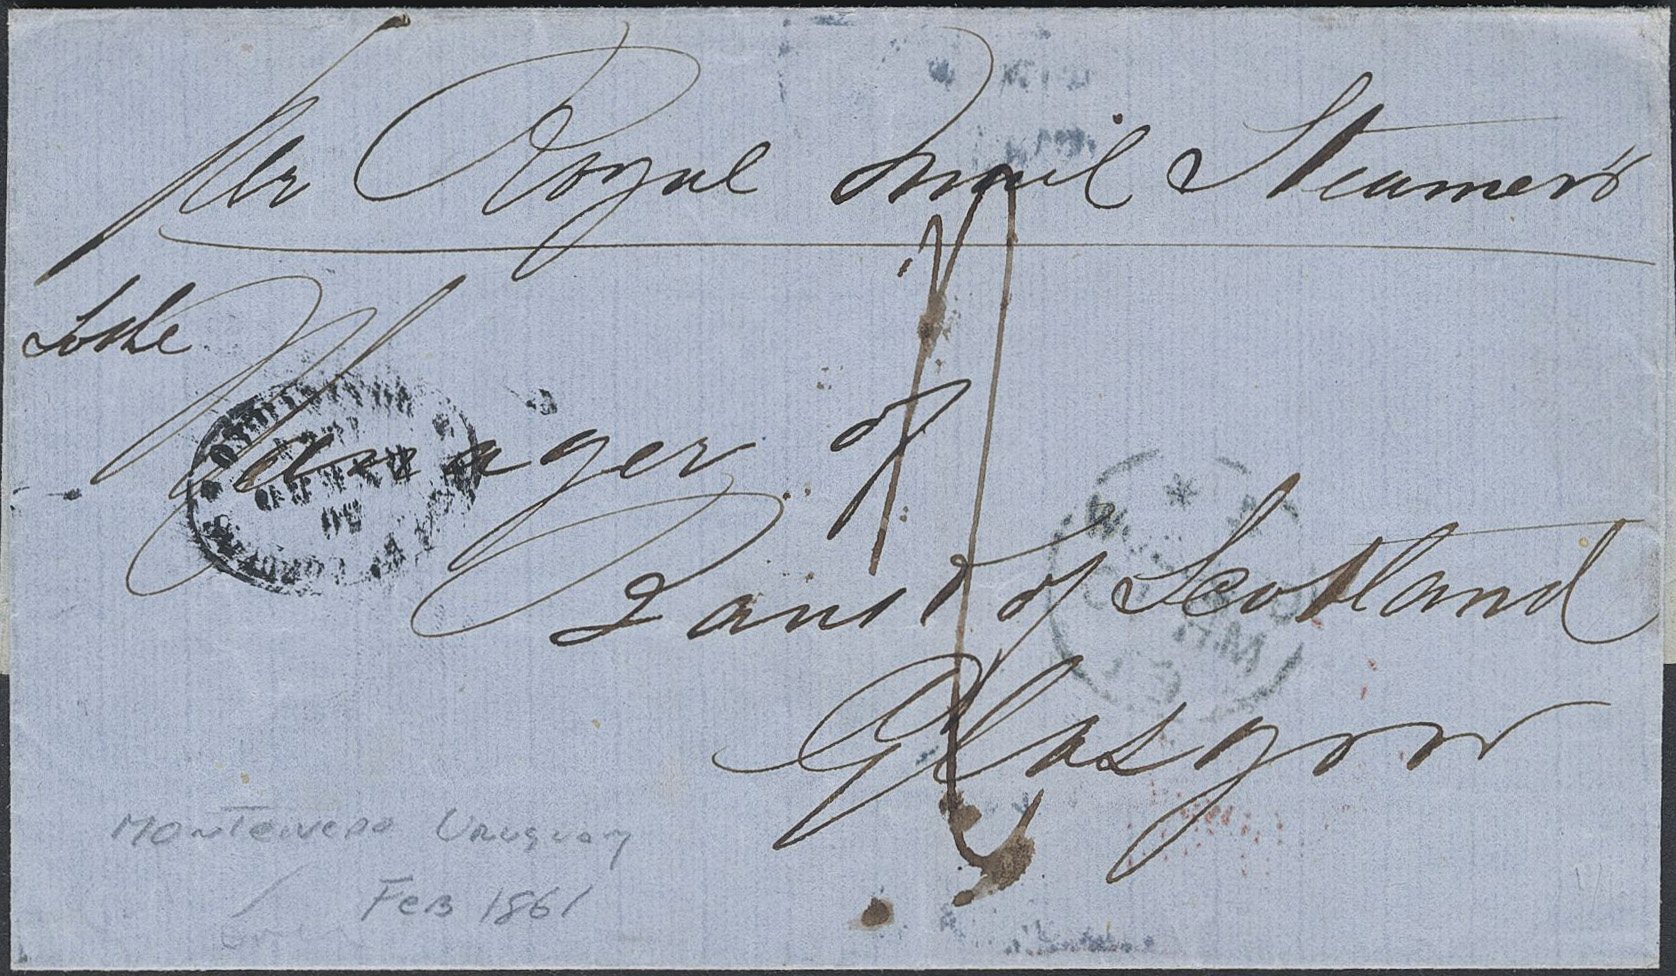 Per Royal Mail Steamer
To the
Manager of
Bank of Scotland
Glasgow
Montevedo Uruguay
Feb 1861